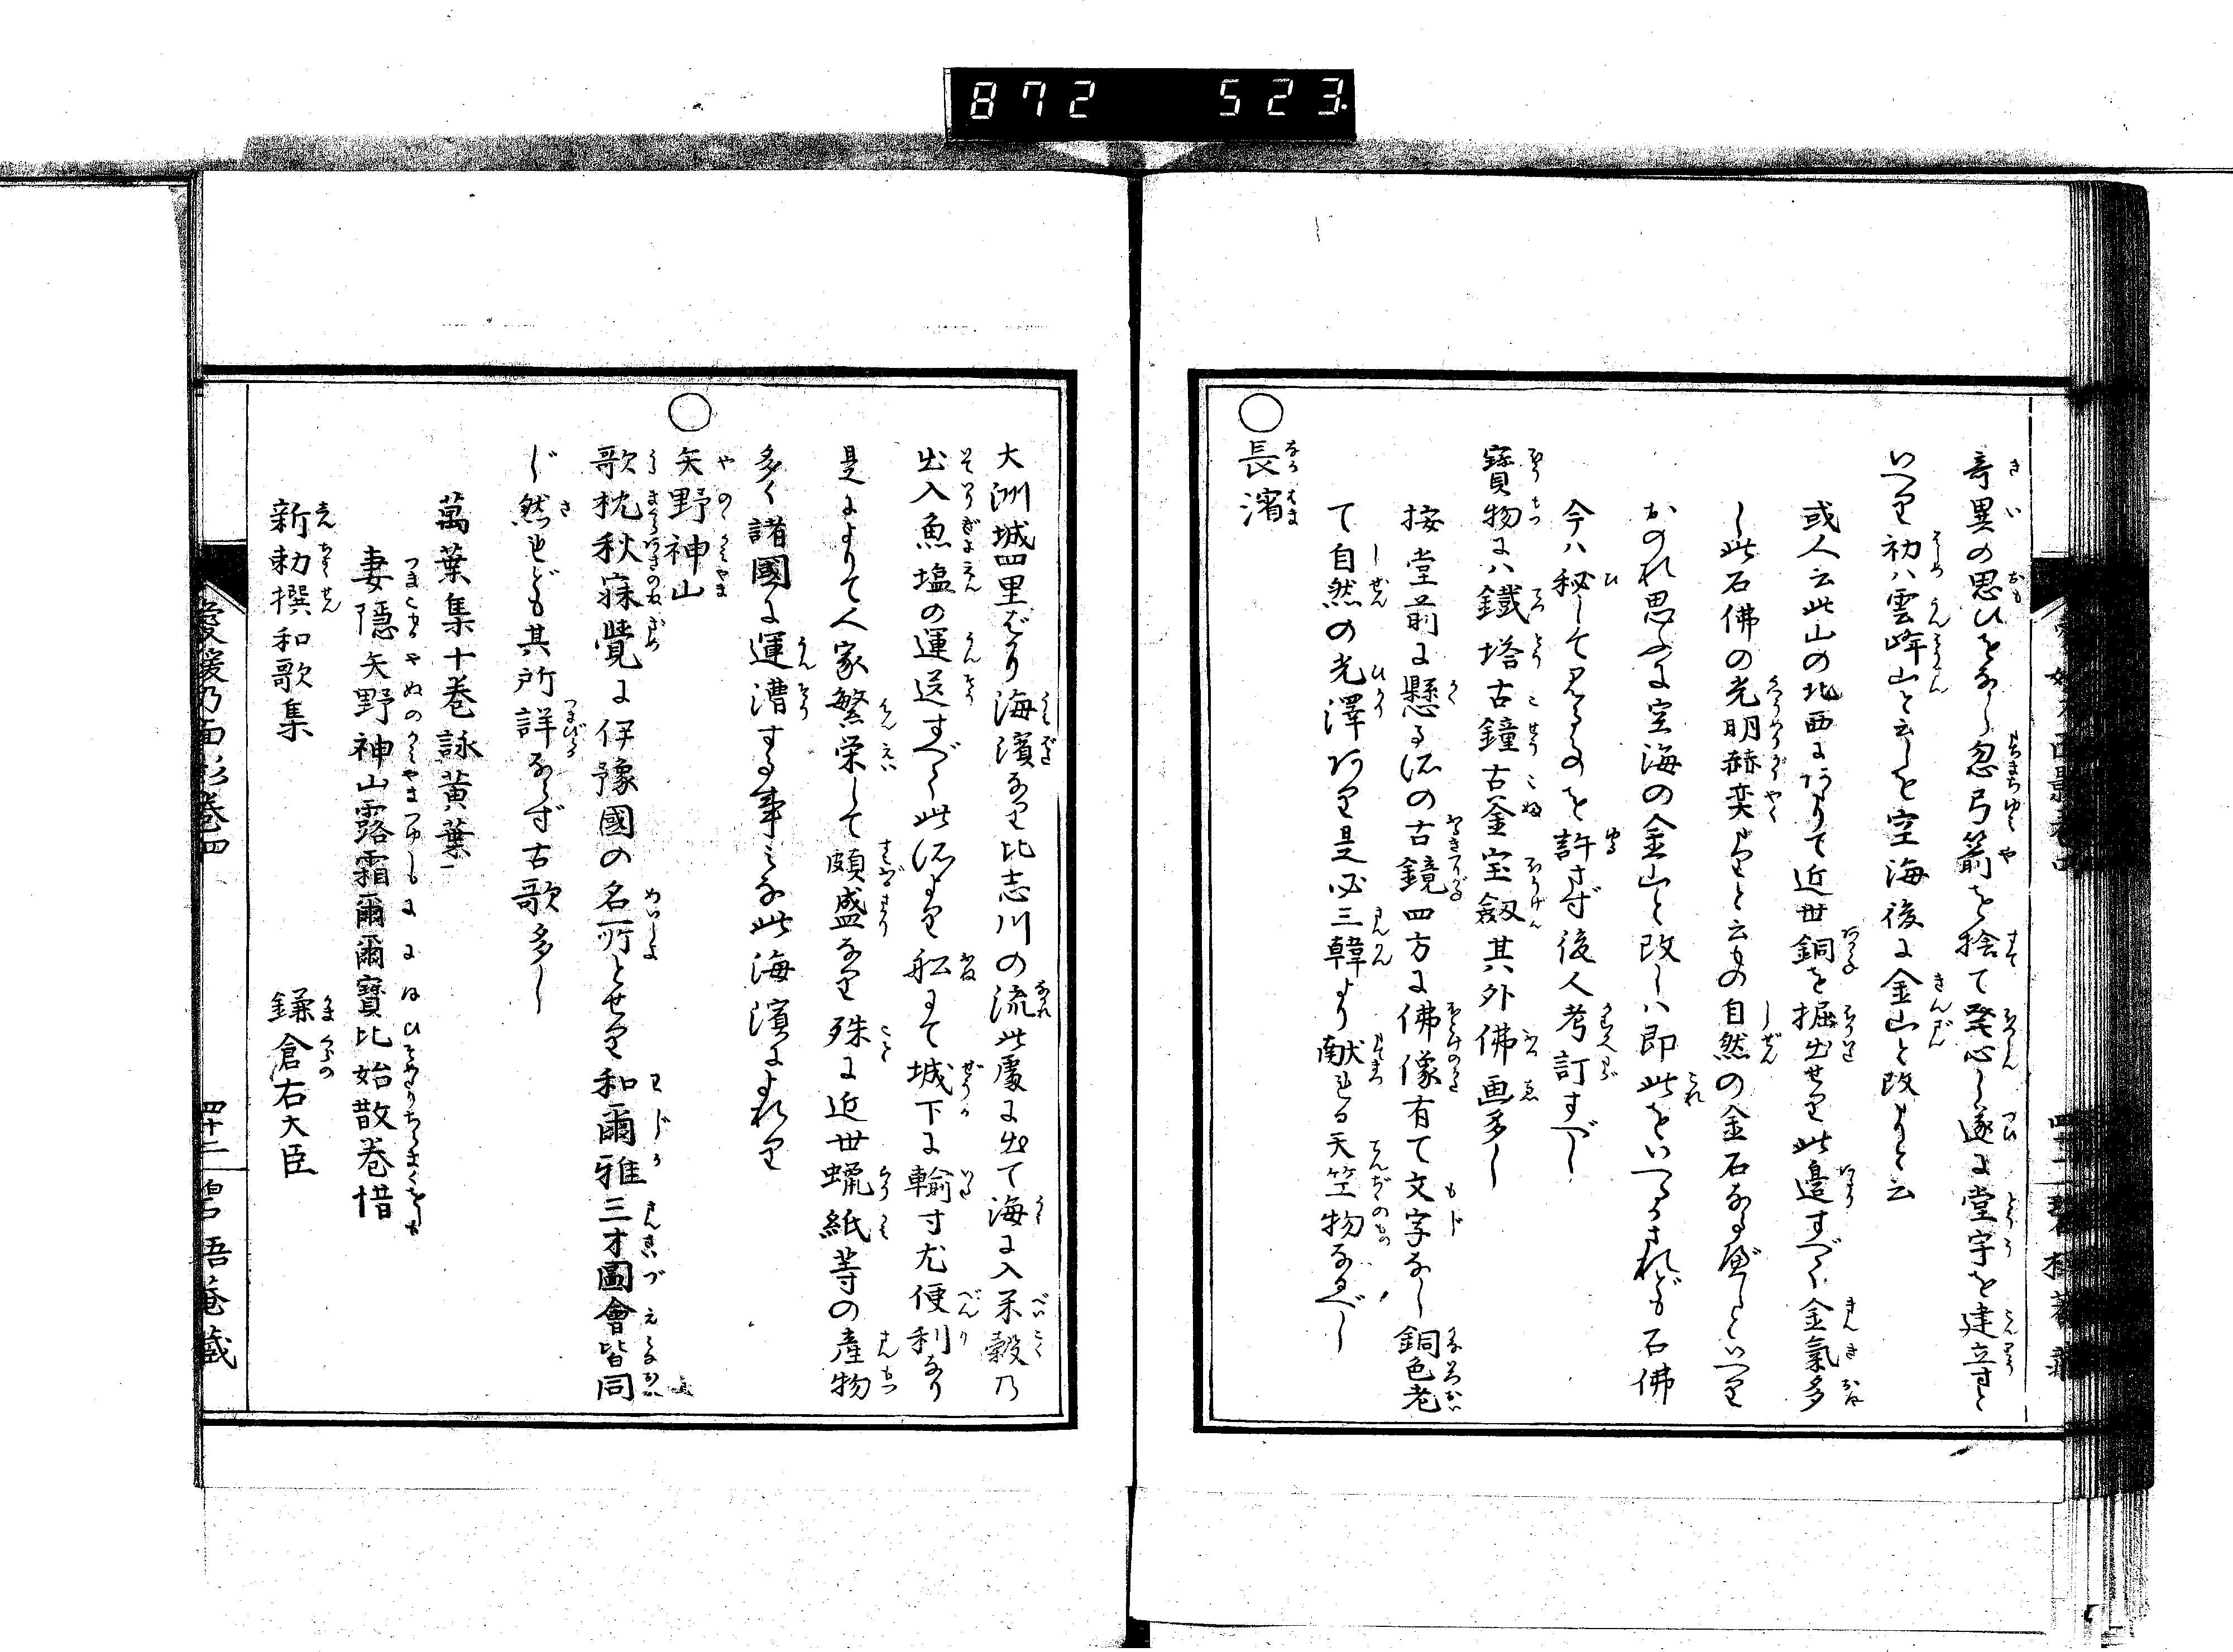 872 523
奇異の思ひをなし忽弓箭を捨て發心し遂に堂宇を建立すと
いへり初ハ雲峰山と云しを空海後に金山と改めしと云
或人云此山の北西にありて近世銅を掘出せり此邊すべて金氣多
し此石佛の光明赫奕たりと云もの自然の金石なる故としいへり
おのれ思ふに空海の金山と改しハ即此をいへるかされども石佛
今ハ秘して見るものを許さず後人考訂すべし
寶物にハ鐵塔古鐘古釜宝劔其外佛画多し
按堂前に懸る所の古鏡四方に佛像有て文字なし銅色老
て自然の光澤あり是必三韓より献れる天竺物なるべし
○長濱
大洲城四里ばかり海濱なり比志川の流此處に出て海に入米穀乃
出入魚塩の運送すべて此所より船にて城下に輸す尤便利なり
是によりて人家繁栄して頗盛なり殊に近世蠟紙等の産物
多く諸國に運漕する事みな此海濱によれり
○矢野神山
歌枕秋寐覺に伊豫國の名所とせり和爾雅三才圖會皆同
じ然れども其所詳ならず古歌多し
萬葉集十巻詠黄葉
妻隱矢野神山露霜爾爾寶比始散巻惜
新勅撰和歌集 鎌倉右大臣
愛媛乃面影巻四 四十二 吾菴藏